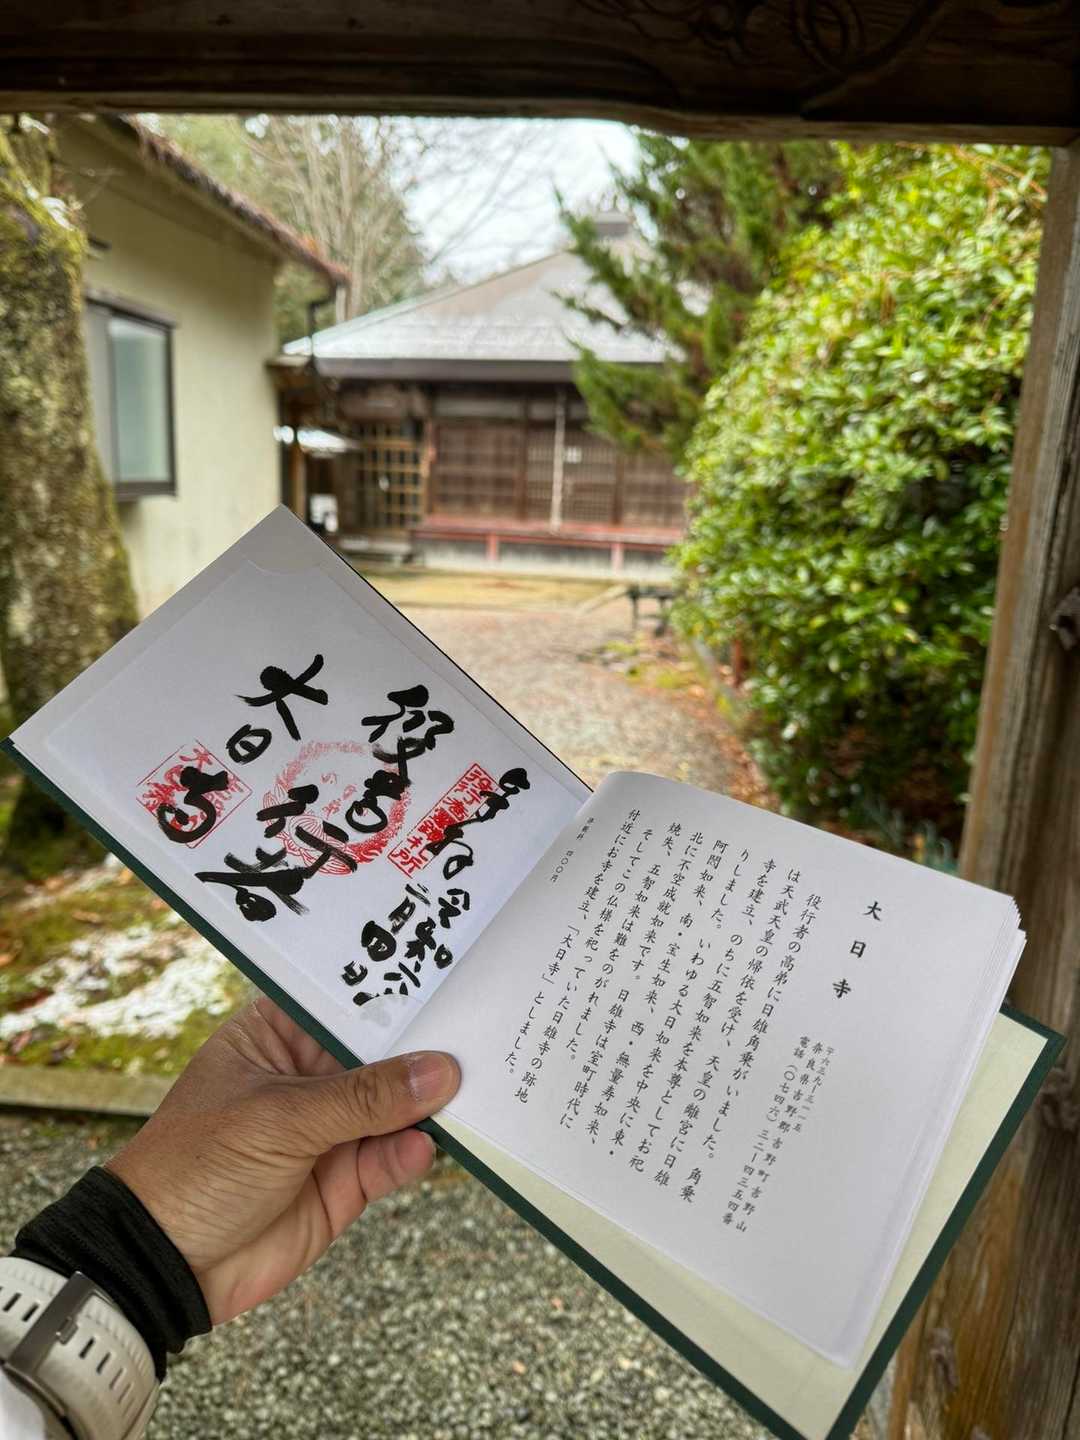 奉拝
令和六年
役行者霊蹟札所
役行者
大日寺
大日寺
〒六三九ー三一一五
奈良県吉野郡吉野町吉野山
電話(〇七四六)三二ー四三五四番
役行者の高弟に日雄角乗がいました。角乗
は天武天皇の帰依を受け、天皇の離宮に日雄
寺を建立、のちに五智如来を本尊としてお祀
りしました。いわゆる大日如来を中央に東・
阿閦如来、南・宝生如来、西・無量寿如来、
北に不空成就如来です。日雄寺は室町時代に
焼失、五智如来は難をのがれました。
そしてこの仏様を祀っていた日雄寺の跡地
付近にお寺を建立、「大日寺」としました。
四〇〇円